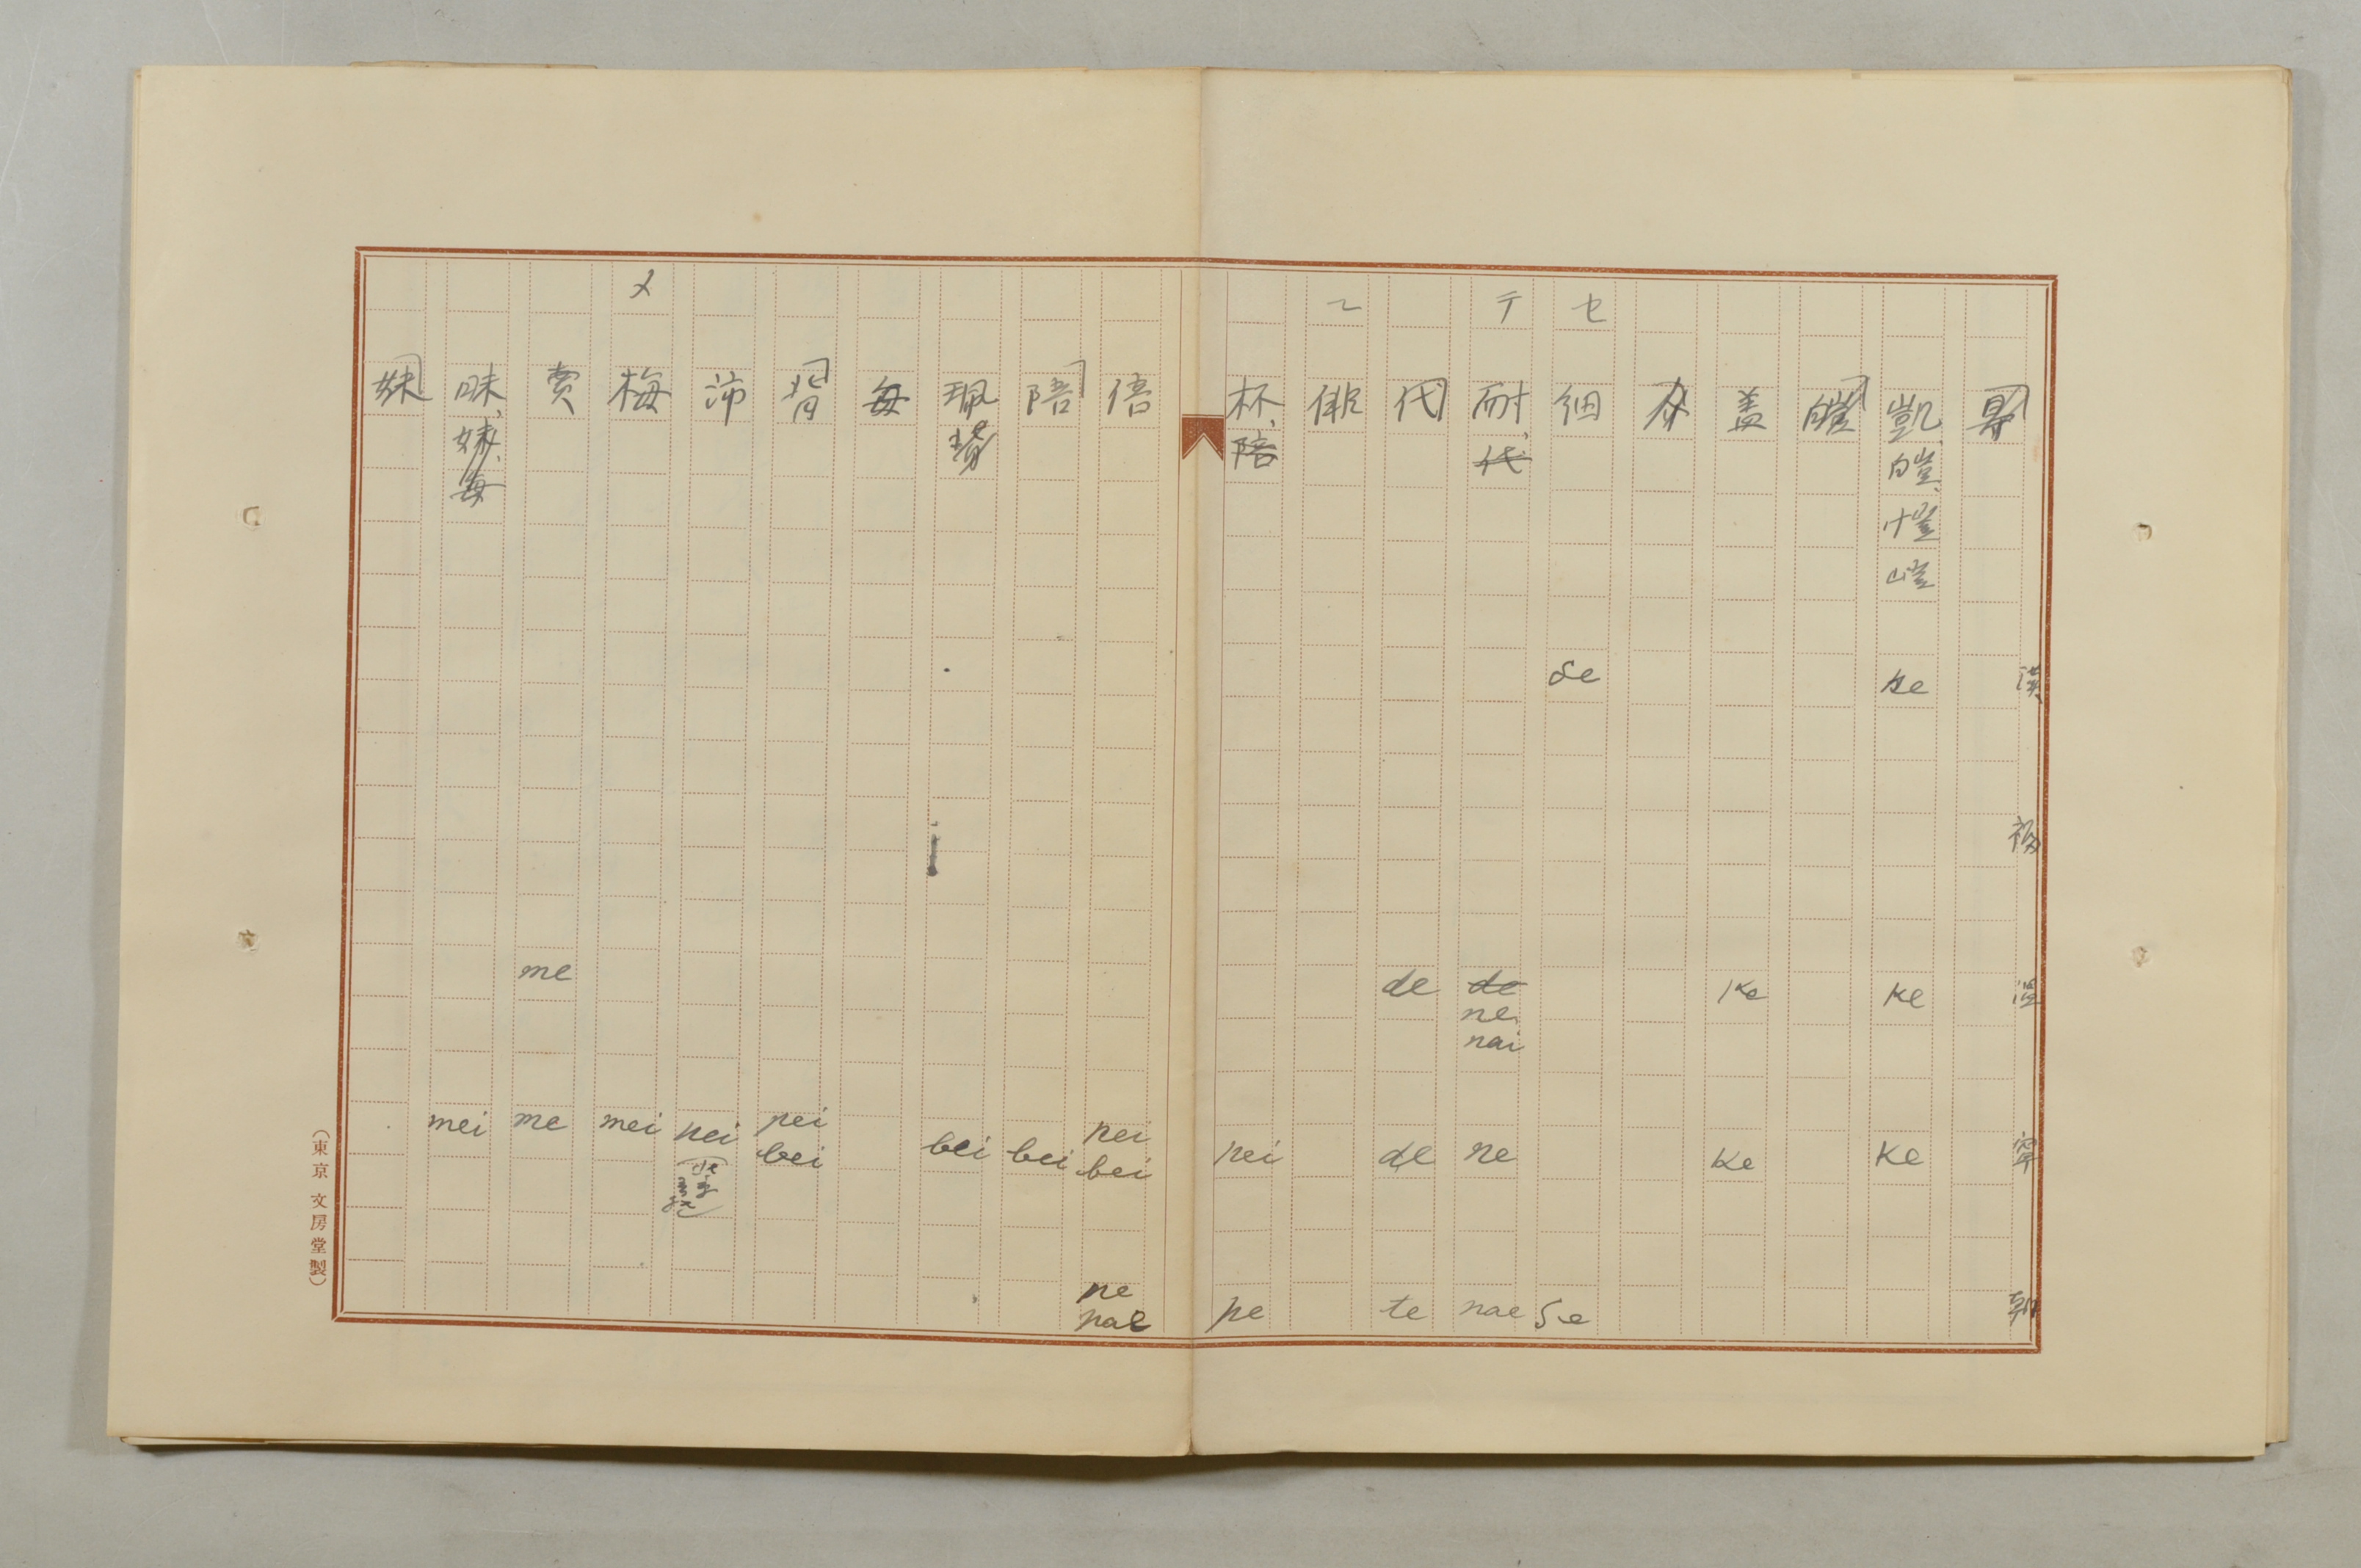 漢
福
温
寧
朝
凱、皚、愷、嵦 ke ke ke
皚
盖 ke ke
セ
細 se se
テ
耐、代 de ne nai ne nae
代 de de te
俳
杯、陪 pei pe
倍 pei bei pe pae
陪 bei
珮 bei
毎
背 pei bei
沛 pei
メ
梅 mei
賣 me me
昧、妹、毎 mei
妹
(東京 文房堂製)